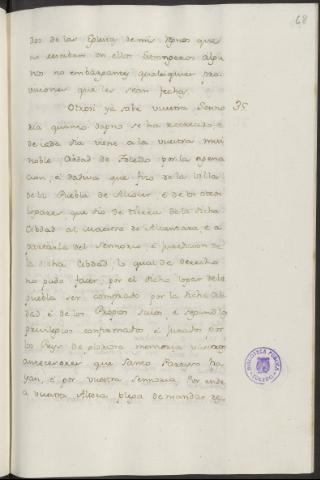 68
dos de las Eglesias de mis Regnos que
no estaban en ellos Estrangeros algu
nos no embargantes qualesquier pro
visiones que les sean fechas
Otrosi ya sabe vuestra Senno 35
ria quanto dapno se ha recrecido, é
de cada dia viene a la vuestra muy
noble Cibdad de Toledo por la
é dadiva que fizo de la Villa
de la Puebla de Alcocer é de los otros
logares que dió de tierra de la dicha
Cibdad al Maestro de Alcantara, é a
partarla del Sennorio é juredicion de
la dicha Cibdad, lo qual de derecho
no pudo facer, por el dicho logar de la
puebla ser comprado por la dicha Cib
dad é de los Propios suios, é segund los
privilegios confirmados é jurados por
los Reys de gloriosa memoria vuestros
antecesores que Santo Parayso ha
yan, é por vuestra Sennoria. Por ende
a vuestra Alteza plega de mandar re
BIBLIOTECA PUBLICA
TOLEDO